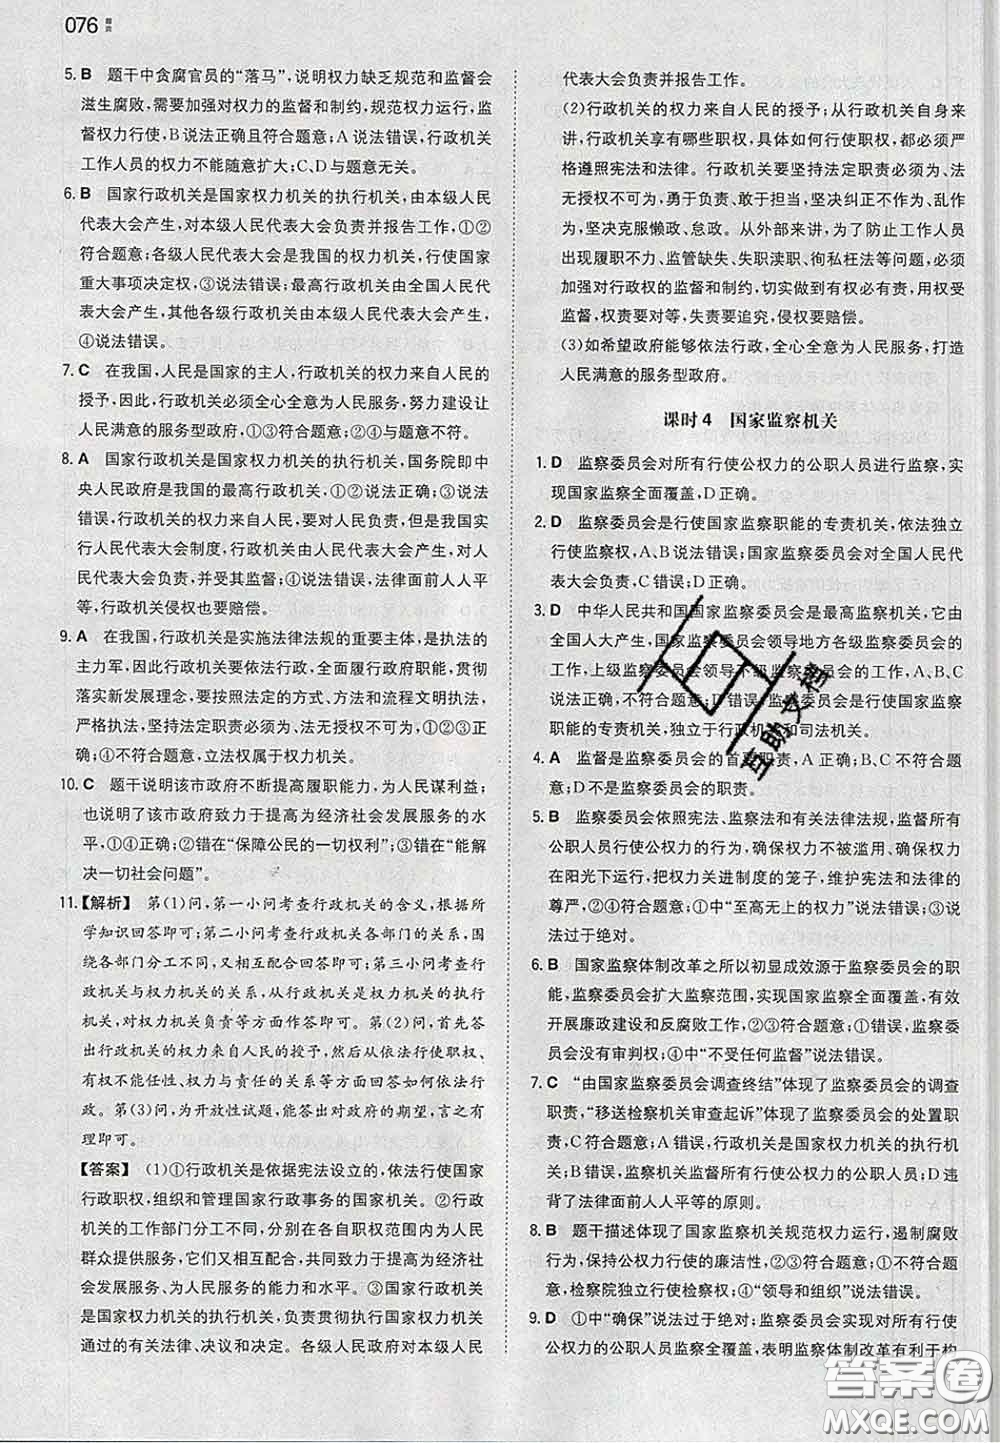 076
5. B 题干中贪腐官员的“落马”,说明权力缺乏规范和监督会
滋生腐败,需要加强对权力的监督和制约,规范权力运行,监
督权力行使,B说法正确且符合题意;A说法错误,行政机关
工作人员的权力不能随意扩大;C、D与题意无关。
6. B 国家行政机关是国家权力机关的执行机关,由本级人民
代表大会产生,对本级人民代表大会负责并报告工作,①②
符合题意;各级人民代表大会是我国的权力机关,行使国家
重大事项决定权,③说法错误;最高行政机关由全国人民代
表大会产生,其他各级行政机关由本级人民代表大会产生,
④说法错误。
7. C 在我国,人民是国家的主人,行政机关的权力来自人民的
授予,因此,行政机关必须全心全意为人民服务,努力建设让
人民满意的服务型政府,①③符合题意;②④与题意不符。
8. A 国家行政机关是国家权力机关的执行机关,国务院即中
央人民政府是我国的最高行政机关,①②说法正确;③说法
错误,行政机关的权力来自人民,要对人民负责,但是我国实
行人民代表大会制度,行政机关由人民代表大会产生,对人
民代表大会负责,并受其监督;④说法错误,法律面前人人平
等,行政机关侵权也要赔偿。
9. A 在我国,行政机关是实施法律法规的重要主体,是执法的
主力军,因此行政机关要依法行政,全面履行政府职能,贯彻
落实新发展理念,要按照法定的方式、方法和流程文明执法,
严格执法,坚持法定职责必须为、法无授权不可为,①②③正
确;④不符合题意,立法权属于权力机关。
10. C 题干说明该市政府不断提高履职能力,为人民谋利益;
也说明了该市政府致力于提高为经济社会发展服务的水
平,①④正确;②错在“保障公民的一切权利”;③错在“能解
决一切社会问题”。
11.【解析】 第(1)问,第一小问考查行政机关的含义,根据所
学知识回答即可;第二小问考查行政机关各部门的关系,围
绕各部门分工不同,又相互配合回答即可;第三小问考查行
政机关与权力机关的关系,从行政机关是权力机关的执行
机关,对权力机关负责等方面作答即可。第(2)问,首先答
出行政机关的权力来自人民的授予,然后从依法行使职权、
有权不能任性、权力与责任的关系等方面回答如何依法行
政。第(3)问,为开放性试题,能答出对政府的期望,言之有
理即可。
【答案】 (1)①行政机关是依据宪法设立的,依法行使国家
行政职权,组织和管理国家行政事务的国家机关。②行政
机关的工作部门分工不同,分别在各自职权范围内为人民
群众提供服务,它们又相互配合,共同致力于提高为经济社
会发展服务、为人民服务的能力和水平。③国家行政机关
是国家权力机关的执行机关,负责贯彻执行国家权力机关
通过的有关法律、决议和决定。各级人民政府对本级人民
代表大会负责并报告工作。
(2)行政机关的权力来自人民的授予;从行政机关自身来
讲,行政机关享有哪些职权,具体如何行使职权,都必须严
格遵守宪法和法律。行政机关要坚持法定职责必须为、法
无授权不可为,勇于负责、敢于担当,坚决纠正不作为、乱作
为,坚决克服懒政、怠政。从外部来讲,为了防止工作人员
出现履职不力、监管缺失、失职渎职、徇私枉法等问题,必须
加强对行政机关的权力的监督和制约,切实做到有权必有责,用权受
监督,权责要对等,失责要追究,侵权要赔偿。
(3)如希望政府能够依法行政,全心全意为人民服务,打造
人民满意的服务型政府。
课时4 国家监察机关
1. D 监察委员会对所有行使公权力的公职人员进行监察,实
现国家监察全面覆盖,D正确。
2. D 监察委员会是行使国家监察职能的专责机关,依法独立
行使监察权,A、B说法错误;国家监察委员会对全国人民代
表大会负责,C错误;D正确。
3. D 中华人民共和国国家监察委员会是最高监察机关,它由
全国人大产生,国家监察委员会领导地方各级监察委员会的
工作,上级监察委员会领导下级监察委员会的工作,A、B、C
说法正确,不符合题意;D错误,监察委员会是行使国家监察
职能的专责机关,独立于行政机关和司法机关。
4. A 监督是监察委员会的首要职责,A正确;B、C不符合题
意;D不是监察委员会的职责。
5. B 监察委员会依照宪法、监察法和有关法律法规,监督所有
公职人员行使公权力的行为,确保权力不被滥用、确保权力
在阳光下运行,把权力关进制度的笼子,维护宪法和法律的
尊严,②④符合题意;①中“至高无上的权力”说法错误;③说
法过于绝对。
6. B 国家监察体制改革之所以初显成效源于监察委员会的职
能,监察委员会扩大监察范围,实现国家监察全面覆盖,有效
开展廉政建设和反腐败工作,②③符合题意;①错误,监察委
员会没有审判权;④中“不受任何监督”说法错误。
7. C “由国家监察委员会调查终结”体现了监察委员会的调查
职责,“移送检察机关审查起诉”体现了监察委员会的处置职
责,C符合题意;A错误,行政机关是国家权力机关的执行机
关;B错误,监察机关监督所有行使公权力的公职人员;D违
背了法律面前人人平等的原则。
8. B 题干描述体现了国家监察机关规范权力运行,遏制腐败
行为,保持公权力行使的廉洁性,②③符合题意;①不符合题
意,检察院独立行使检察权;④“领导和组织”说法错误。
9. D ①中“确保”说法过于绝对;监察委员会对所有行使
公权力的公职人员监察全覆盖,表明监察体制改革有利于构
互助文档
答案圈
MXQE.COM